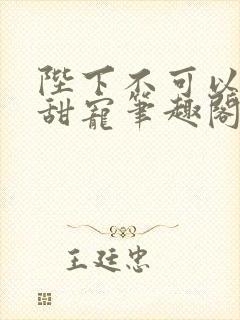 陛下不可以
甜宠笔趣阁
王廷忠